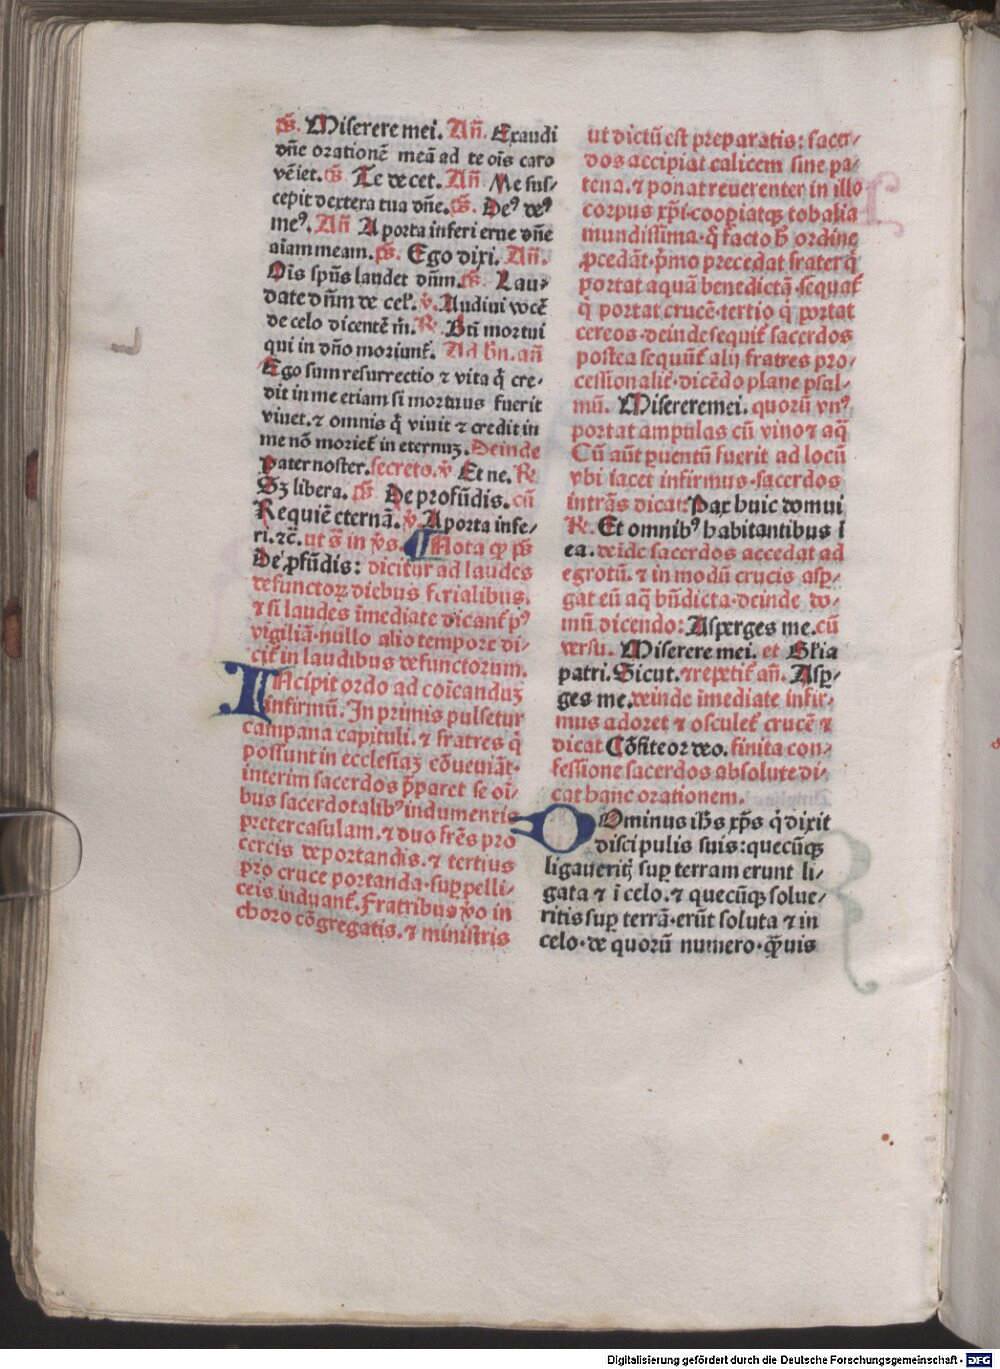 ps̄. Miserere mei. Añ. Exaudi
dñe orationē meā ad te oīs caro
vēiet. ps̄. Te decet. Añ. Me sus/
cepit dextera tua dñe. ps̄. Deꝰ deꝰ
meꝰ. Añ A porta inferi erue dñe
aīam meam. ps̄. Ego dixi. Añ.
Oīs spūs laudet dñm. ps̄. Lau/
date dñm de cel̄. v̄. Audiui vocē
de celo dicentē m̄. R̄. Btī mortui
qui in dño moriunt̄. Ad bn̄. añ
Ego sum resurrectio ⁊ vita q̄ cre/
dit in me etiam si mortuus fuerit
viuet. ⁊ omnis q̄ viuit ⁊ credit in
me nō moriet̄ in eternuꝫ. Deinde
Pater noster. secreto. v̄ Et ne. R̄
Sꝫ libera. ps̄. De profūdis. cū
Requiē eternā. v̄. A porta infe/
ri. ⁊c̄. ut s̄ in v̄s. Nota ꝙ ps̄
De ꝓfūdis: dicitur ad laudes
defunctoꝝ diebus ferialibus.
⁊ si laudes īmediate dicant̄ pꝰ
vigiliā. nullo alio tempore di/
cit̄ in laudibus defunctorum.
INcipit ordo ad coīcanduꝫ
infirmū. In primis pulsetur
campana capituli. ⁊ fratres q̄
possunt in ecclesiaꝫ cōueniāt.
interim sacerdos p̄paret se oi/
bus sacerdotalibꝰ indumentis
preter casulam. ⁊ duo frēs pro
cereis deportandis. ⁊ tertius
pro cruce portanda. suꝑpelli/
ceis induant̄. Fratribus v̄o in
choro cōgregatis. ⁊ ministris
ut dictū est preparatis: sacer/
dos accipiat calicem sine pa/
tena. ⁊ ponat reuerenter in illo
corpus xp̄i. coopiatqꝫ tobalia
mundissima. q̄ facto h̄ ordine
ꝓcedāt. p̄mo precedat frater q̄
portat aquā benedictā. sequat̄
q̄ portat crucē. tertio q̄ portat
cereos. deinde sequit̄ sacerdos
postea sequūt̄ alij fratres pro/
cessionalit̄. dicēdo plane psal/
mū. Miserere mei. quorū vnꝰ
portat ampulas cū vino ⁊ aq̄
Cū aūt ꝑuentū fuerit ad locū
vbi iacet infirmus. sacerdos
intrās dicat: Pax huic domui
R̄. Et omnibꝰ habitantibus ī
ea. deīde sacerdos accedat ad
egrotū. ⁊ in modū crucis asꝑ/
gat eū aq̄ bn̄dicta. deinde do/
mū dicendo: Asperges me. cū
versu. Miserere mei. et Gl̄ia
patri. Sicut. ⁊ repetit̄ añ. Asꝑ/
ges me. deinde īmediate infir/
mus adoret ⁊ osculet̄ crucē ⁊
dicat Cōfiteor deo. finita con/
fessione sacerdos absolute di/
cat hanc orationem.
DOminus ih̄s xp̄s q̄ dixit
discipulis suis: quecūqꝫ
ligaueritꝭ suꝑ terram erunt li/
gata ⁊ ī celo. ⁊ quecūqꝫ solue/
ritis suꝑ terrā. erūt soluta ⁊ in
celo. de quorū numero. q̄uis
Digitalisierung gefördert durch die Deutsche Forschungsgemeinschaft - DFG